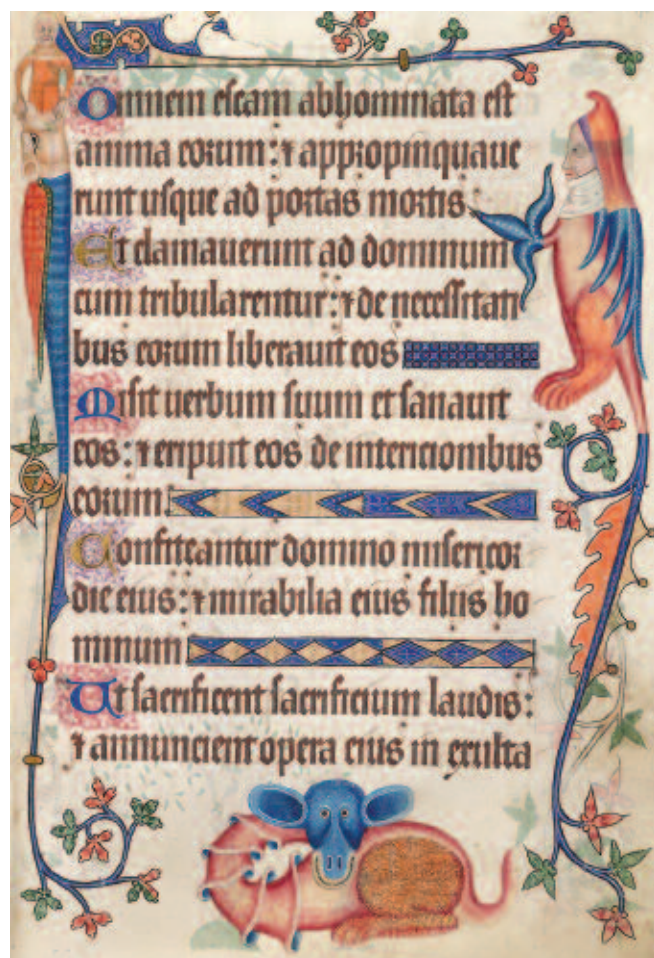 Omnem escam abhominata est
anima eorum: ⁊ appropinquaue
runt usque ad portas mortis.
Et clamauerunt ad dominum
cum tribularentur: ⁊ de necessitati
bus eorum liberauit eos
Misit uerbum suum et sanauit
eos: ⁊ eripuit eos de intericionibus
eorum.
Confiteantur domino misericor
die eius: ⁊ mirabilia eius filiis ho
minum
Ut sacrificent sacrificium laudis:
⁊ annuncient opera eius in exulta